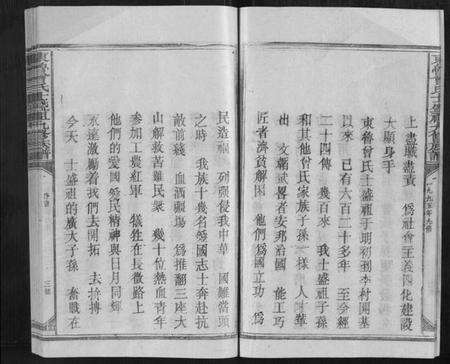 上盡職盡責　為社會主義四化建設
大顯身手
東魯曾氏士盛祖于明初到李村開基
以來　已有六百二十多年　至今經
二十四傳　幾百來　我士盛祖子孫
和其他曾氏家族子孫一樣　人才輩
出　文韜武畧者安邦治國　能工巧
匠者濟貧解困　他們爲國立功　爲
民造福　列强侵我中華　國難當頭
之時　我族十幾名愛國志士奔赴抗
敵前綫　血洒疆場　爲推翻三座大
山解救苦難民衆　幾十位熱血青年
參加工農紅軍　犧牲在長徵路上
他們的愛國愛民精神與日月同輝
永遠激勵着我們去開拓　去拼搏
今天　士盛祖的廣大子孫　奮戰在